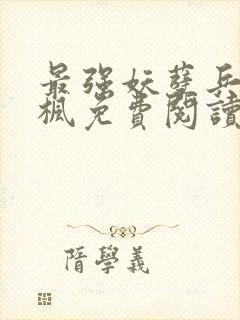 最強妖孽兵
楓免費閱讀
隋學義